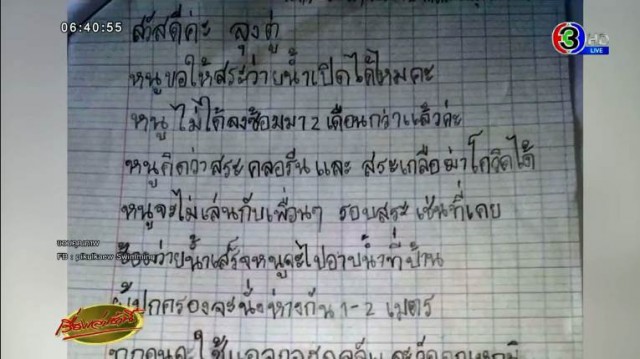 06:40:55
3 HD
LIVE
สวัสดีค่ะ ลุงตู่
หนูขอให้สระว่ายน้ำเปิดได้ไหมคะ
หนู ไม่ได้ลงซ้อมมา 2 เดือนกว่าแล้วค่ะ
หนูคิดว่าสระคลอรีนและ สระเกลือ ฆ่าโควิดได้
หนูจะไม่เล่นกับเพื่อนๆ รอบสระ เช่นที่เคย
ซ้อมว่ายน้ำเสร็จหนูจะไปอาบน้ำที่บ้าน
ผู้ปกครองจะนั่งห่างกัน 1-2 เมตร
ทุกคนจะใช้แอลกอฮอล์
ขอบคุณภาพ
FB : pikulkaew Swimming